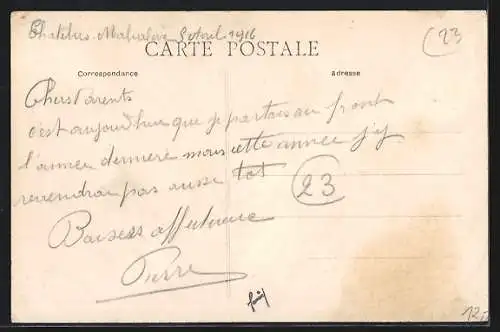 Chatelus-Malvaleix 5 Avril 1916
(23)
CARTE POSTALE
Correspondance
Adresse
Chers Parents
c'est aujourd'hui que je partais au front
l'année dernière mais cette année j'y
reviendrai pas aussi tot
23
Baisers affectueux
Pierre